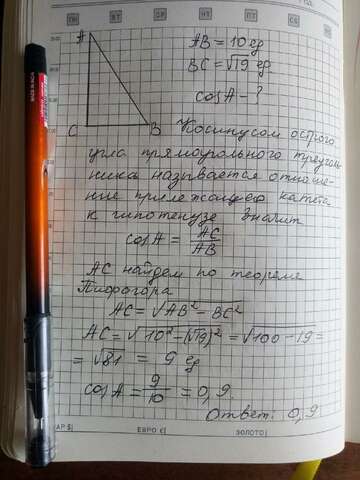 ПН ВТ СР ЧТ ПТ СБ
A
C
B
AB = 10 ед
BC = √19 ед
cos A - ?
Косинусом острого
угла прямоугольного треуголь
ника называется отноше-
ние прилежащего катета
к гипотенузе значит
cos A = AC/AB
AC найдем по теореме
Пифагора
AC = √AB² - BC²
AC = √10² - (√19)² = √100 - 19 =
= √81 = 9 ед
cos A = 9/10 = 0,9.
Ответ: 0,9
ЕВРО €| ЗОЛОТО|